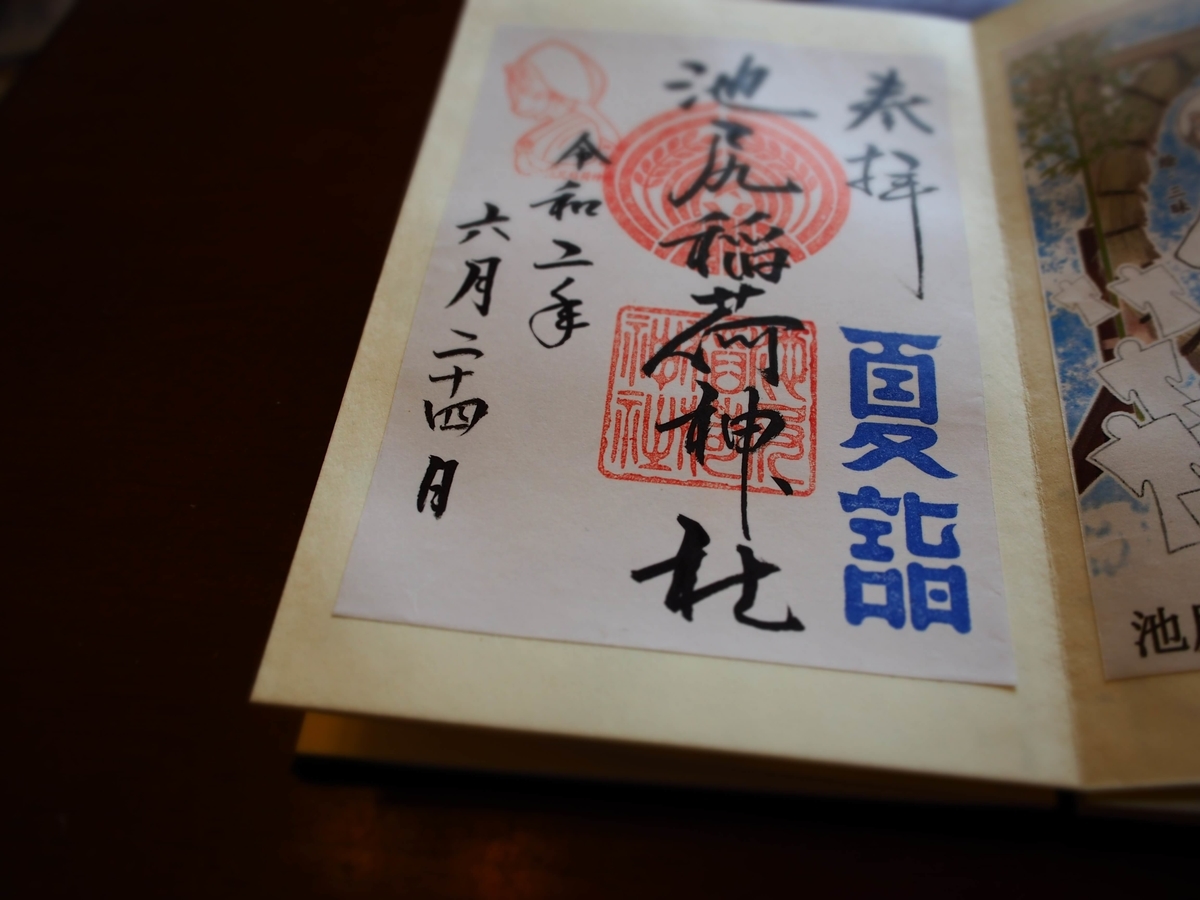 池
奉拝
夏詣
池尻稲荷神社
令和二年
六月二十四日